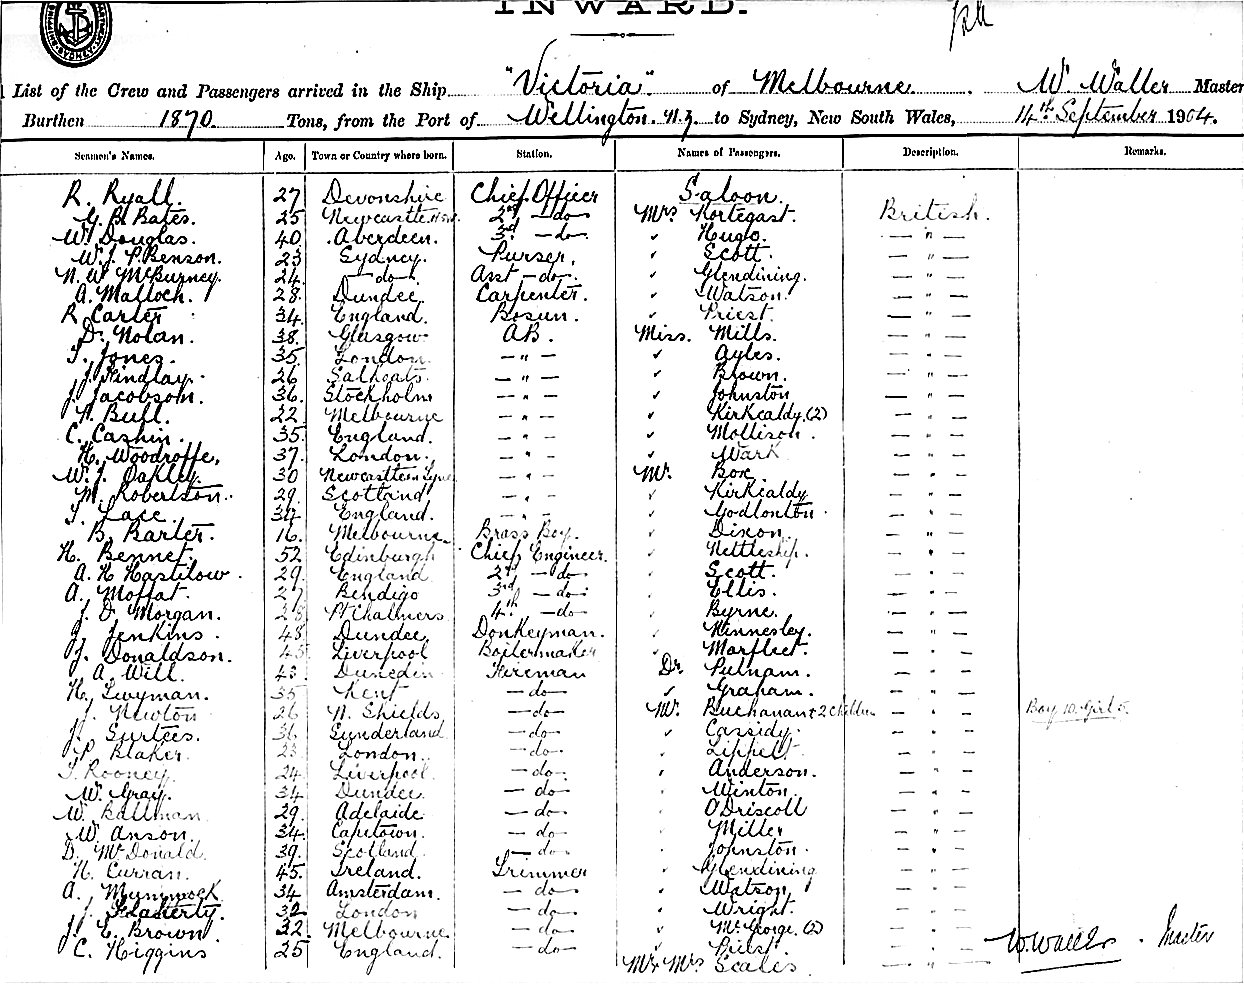 INWARD.
SYDNEY
List of the Crew and Passengers arrived in the Ship "Victoria" of Melbourne. W. Waller Master
Burthen 1870. Tons, from the Port of Wellington. N.Z. to Sydney, New South Wales, 14th September 1904.
Seamen's Names. Age. Town or Country where born. Station. Names of Passengers. Description. Remarks.
R. Ryall. 27 Devonshire Chief Officer Saloon.
G. B. Bates. 25 Newcastle 2nd —do— Mrs Kortegast. British.
W. Douglas. 40 Aberdeen. 3rd —do— ✓ Hugo. — " —
W. J. P. Benson. 23 Sydney. Purser. ✓ Scott. — " —
N. W. McBurney. 24. —do— Asst —do— ✓ Glendining. — " —
A. Malloch. 28. Dundee. Carpenter. ✓ Watson. — " —
R. Carter 34. England. Bosun. ✓ Priest. — " —
D. Nolan. 38. Glasgow AB. Miss. Mills. — " —
T. Jones. 35. London. — " — ✓ Ayles. — " —
J. Findlay. 26 Saltcoats. — " — ✓ Brown. — " —
J. Jacobsom. 36. Stockholm — " — ✓ Johnston — " —
Bull. 22 Melbourne — " — ✓ Kirkcaldy. (2) — " —
C. Cashin. 35. England. — " — ✓ Mollison. — " —
H. Woodroffe. 37. London. — " — ✓ Wark — " —
W. J. Oakley. 30 Newcastle on Tyne — " — Mr. Box. — " —
M. Robertson. 29. Scotland. — " — ✓ Kirkcaldy — " —
T. Lace. 34 England. — " — ✓ Godlonton. — " —
B. Barter. 16. Melbourne Brass Boy. ✓ Dixon. — " —
H. Bennet. 52 Edinburgh Chief Engineer. ✓ Nettleship. — " —
A. H. Hastilow. 29. England 2nd —do— ✓ Scott. — " —
A. Moffat. 27 Bendigo 3rd —do— ✓ Ellis. — " —
J. D. Morgan. 28 Pt Chalmers 4th —do— ✓ Byrne. — " —
J. Jenkins. 48 Dundee. Donkeyman. ✓ Kinnesley. — " —
J. Donaldson. 45 Liverpool Boilermaker ✓ Morfleet. — " —
A. Will. 43 Dunedin Fireman Dr. Putnam. — " —
H. Twyman. 35 Kent —do— ✓ Graham. — " —
J. Newton 26 N. Shields —do— Mr. Buchanan + 2 children — " — Boy 10. Girl 5.
J. Surtees. 36 Sunderland —do— ✓ Cassidy. — " —
P. Blaker. 23 London. —do— ✓ Lippelt — " —
T. Rooney. 24 Liverpool. —do— ✓ Anderson. — " —
W. Gray. 34 Dundee —do— ✓ Winton. — " —
W. Ballman. 29. Adelaide —do— ✓ O'Driscoll — " —
W. Anson. 34. Capetown. —do— ✓ Miller — " —
D. McDonald. 39. Scotland. —do— ✓ Johnston. — " —
H. Curran. 45. Ireland. Trimmer ✓ Glendining — " —
A. Mummock 34 Amsterdam. —do— ✓ Watson — " —
J. Flaherty. 32 London —do— ✓ Wright. — " —
J. E. Brown. 32. Melbourne —do— ✓ McGeorge. (2) — " —
C. Higgins 25 England. —do— ✓ Priest. — " — W. Waller. Master
Mr Mrs Scales — " —